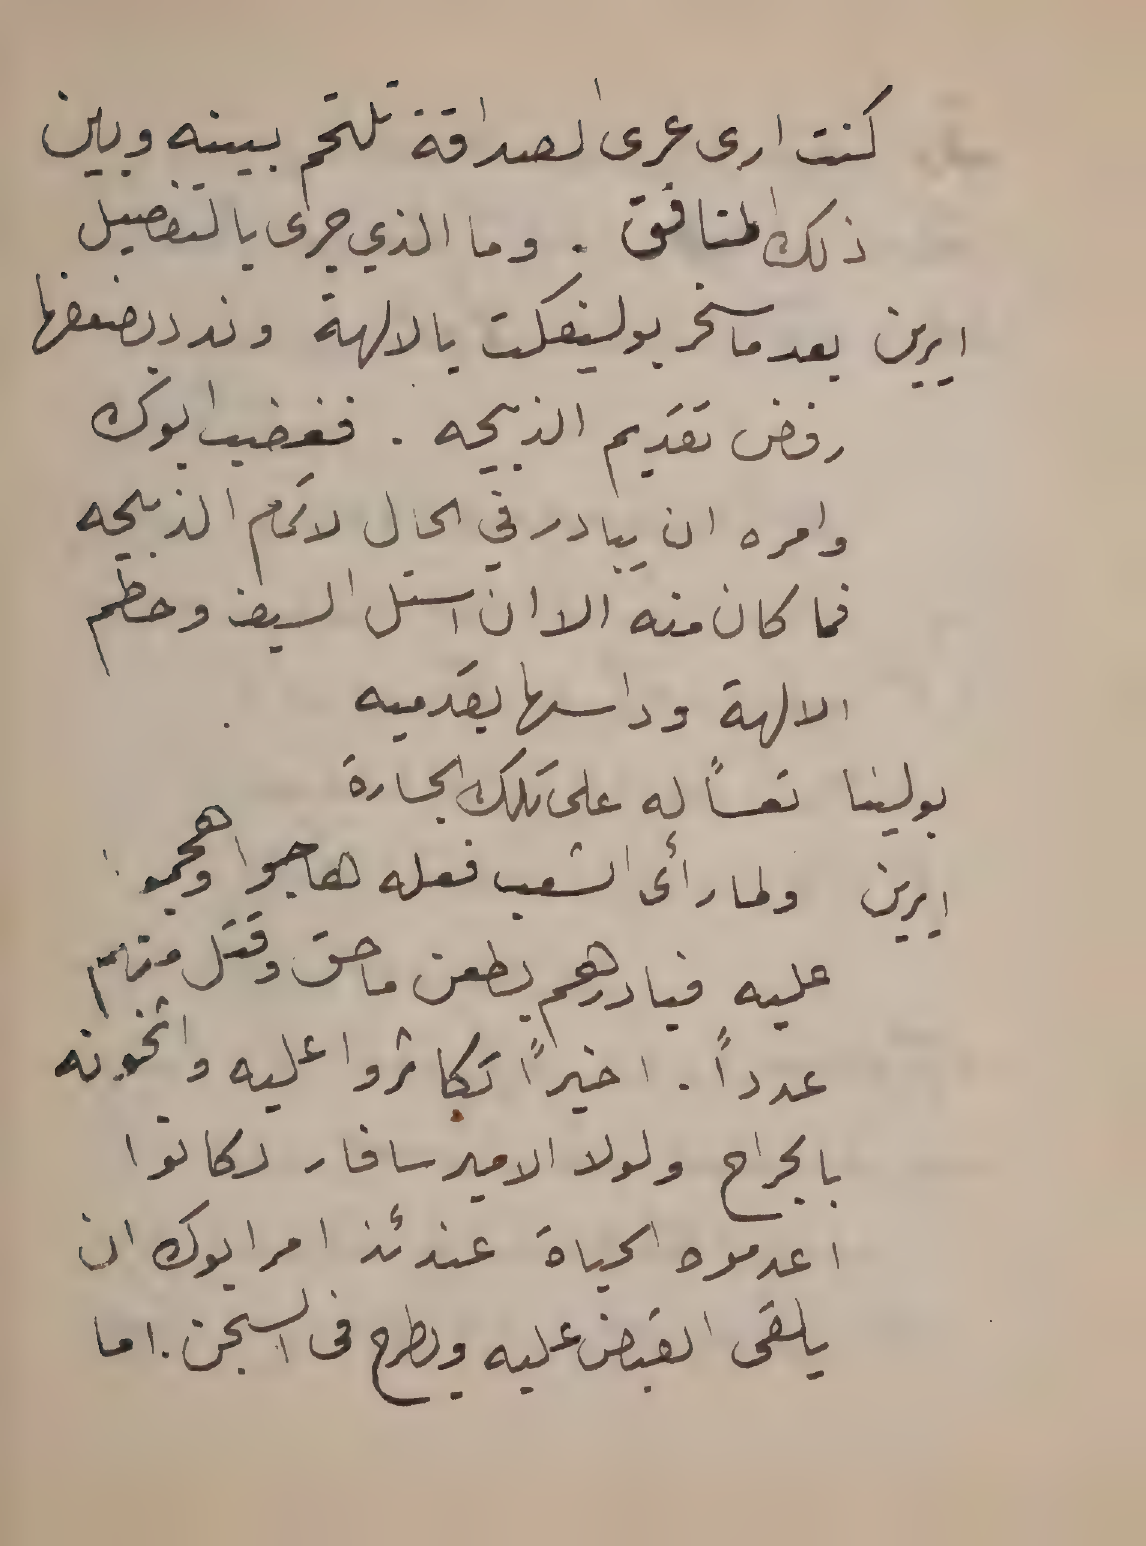 كنت ارى عرى الصداقة تلتحم بينه وبين
ذلك المنافق . وما الذي جرى بالتفصيل
ايرين بعد ما سخر بوليفكت بالالهة وندد بضعفها
رفض تقديم الذبيحه . فغضب ابوك
وامره ان يبادر في الحال لاتمام الذبيحه
فما كان منه الا ان استل السيف وحطم
الالهة وداسها بقدميه
بولينا تعساً له على تلك الجسارة
ايرين ولما رأى الشعب فعله هاجوا وهجموا
عليه فبادرهم بطعن ماحق وقتل منهم
عدداً . اخيراً تكاثروا عليه واثخنوه
بالجراح ولولا الامير سافار لكانوا
اعدموه الحياة عندئذ امر ابوك ان
يلقى القبض عليه ويطرح فى السجن . اما